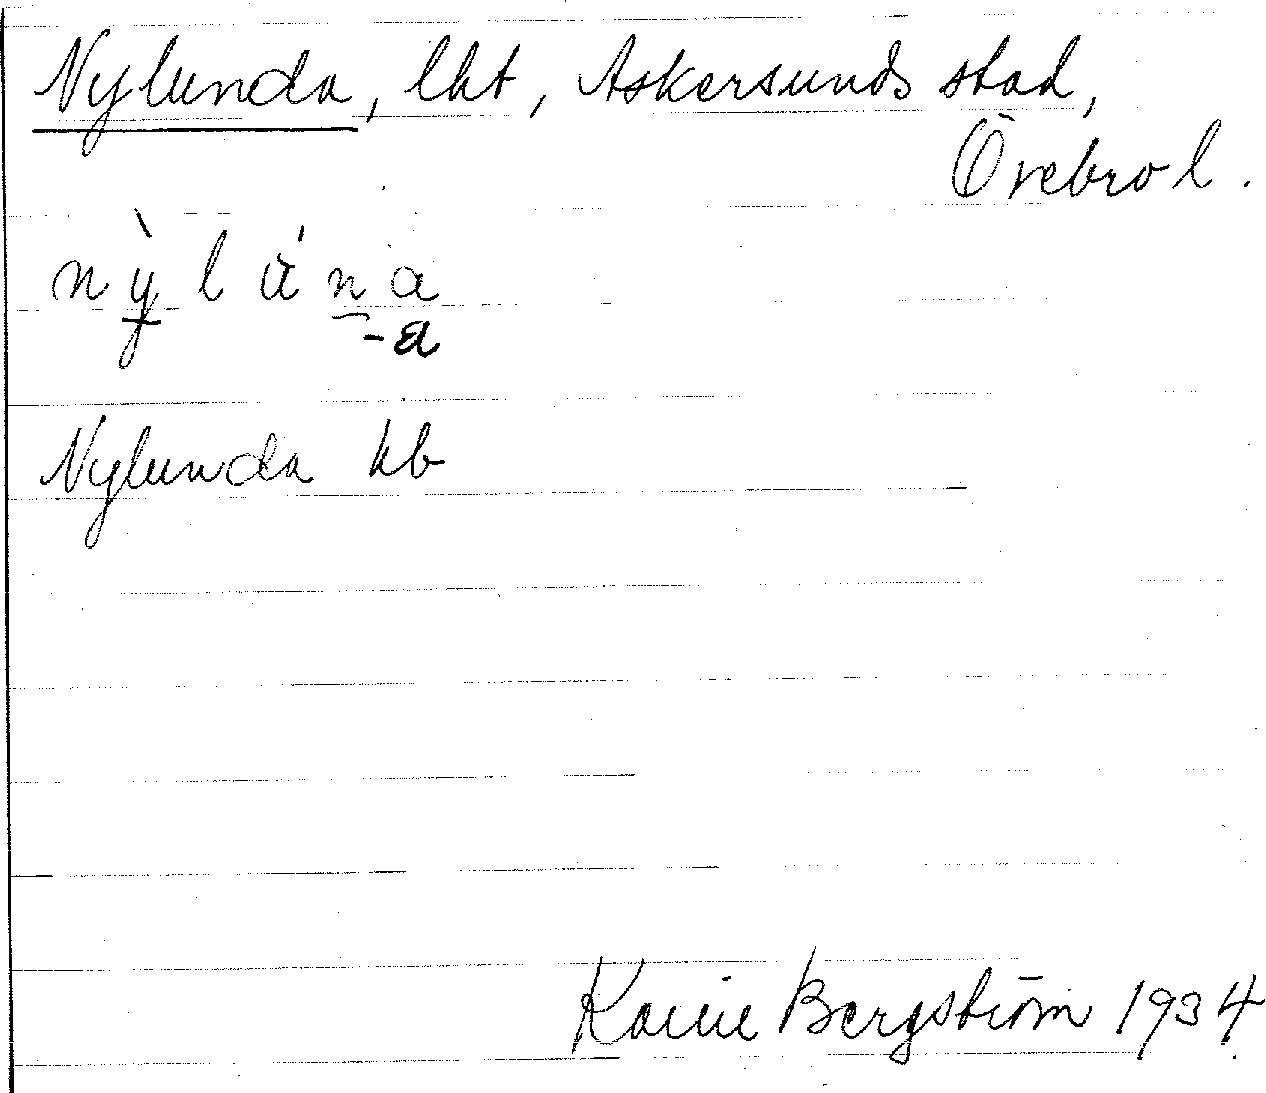 Nylunda, lht, Askersunds stad,
Örebro l.
nỳlúna
-a
Nylunda kb
Karin Bergström 1934